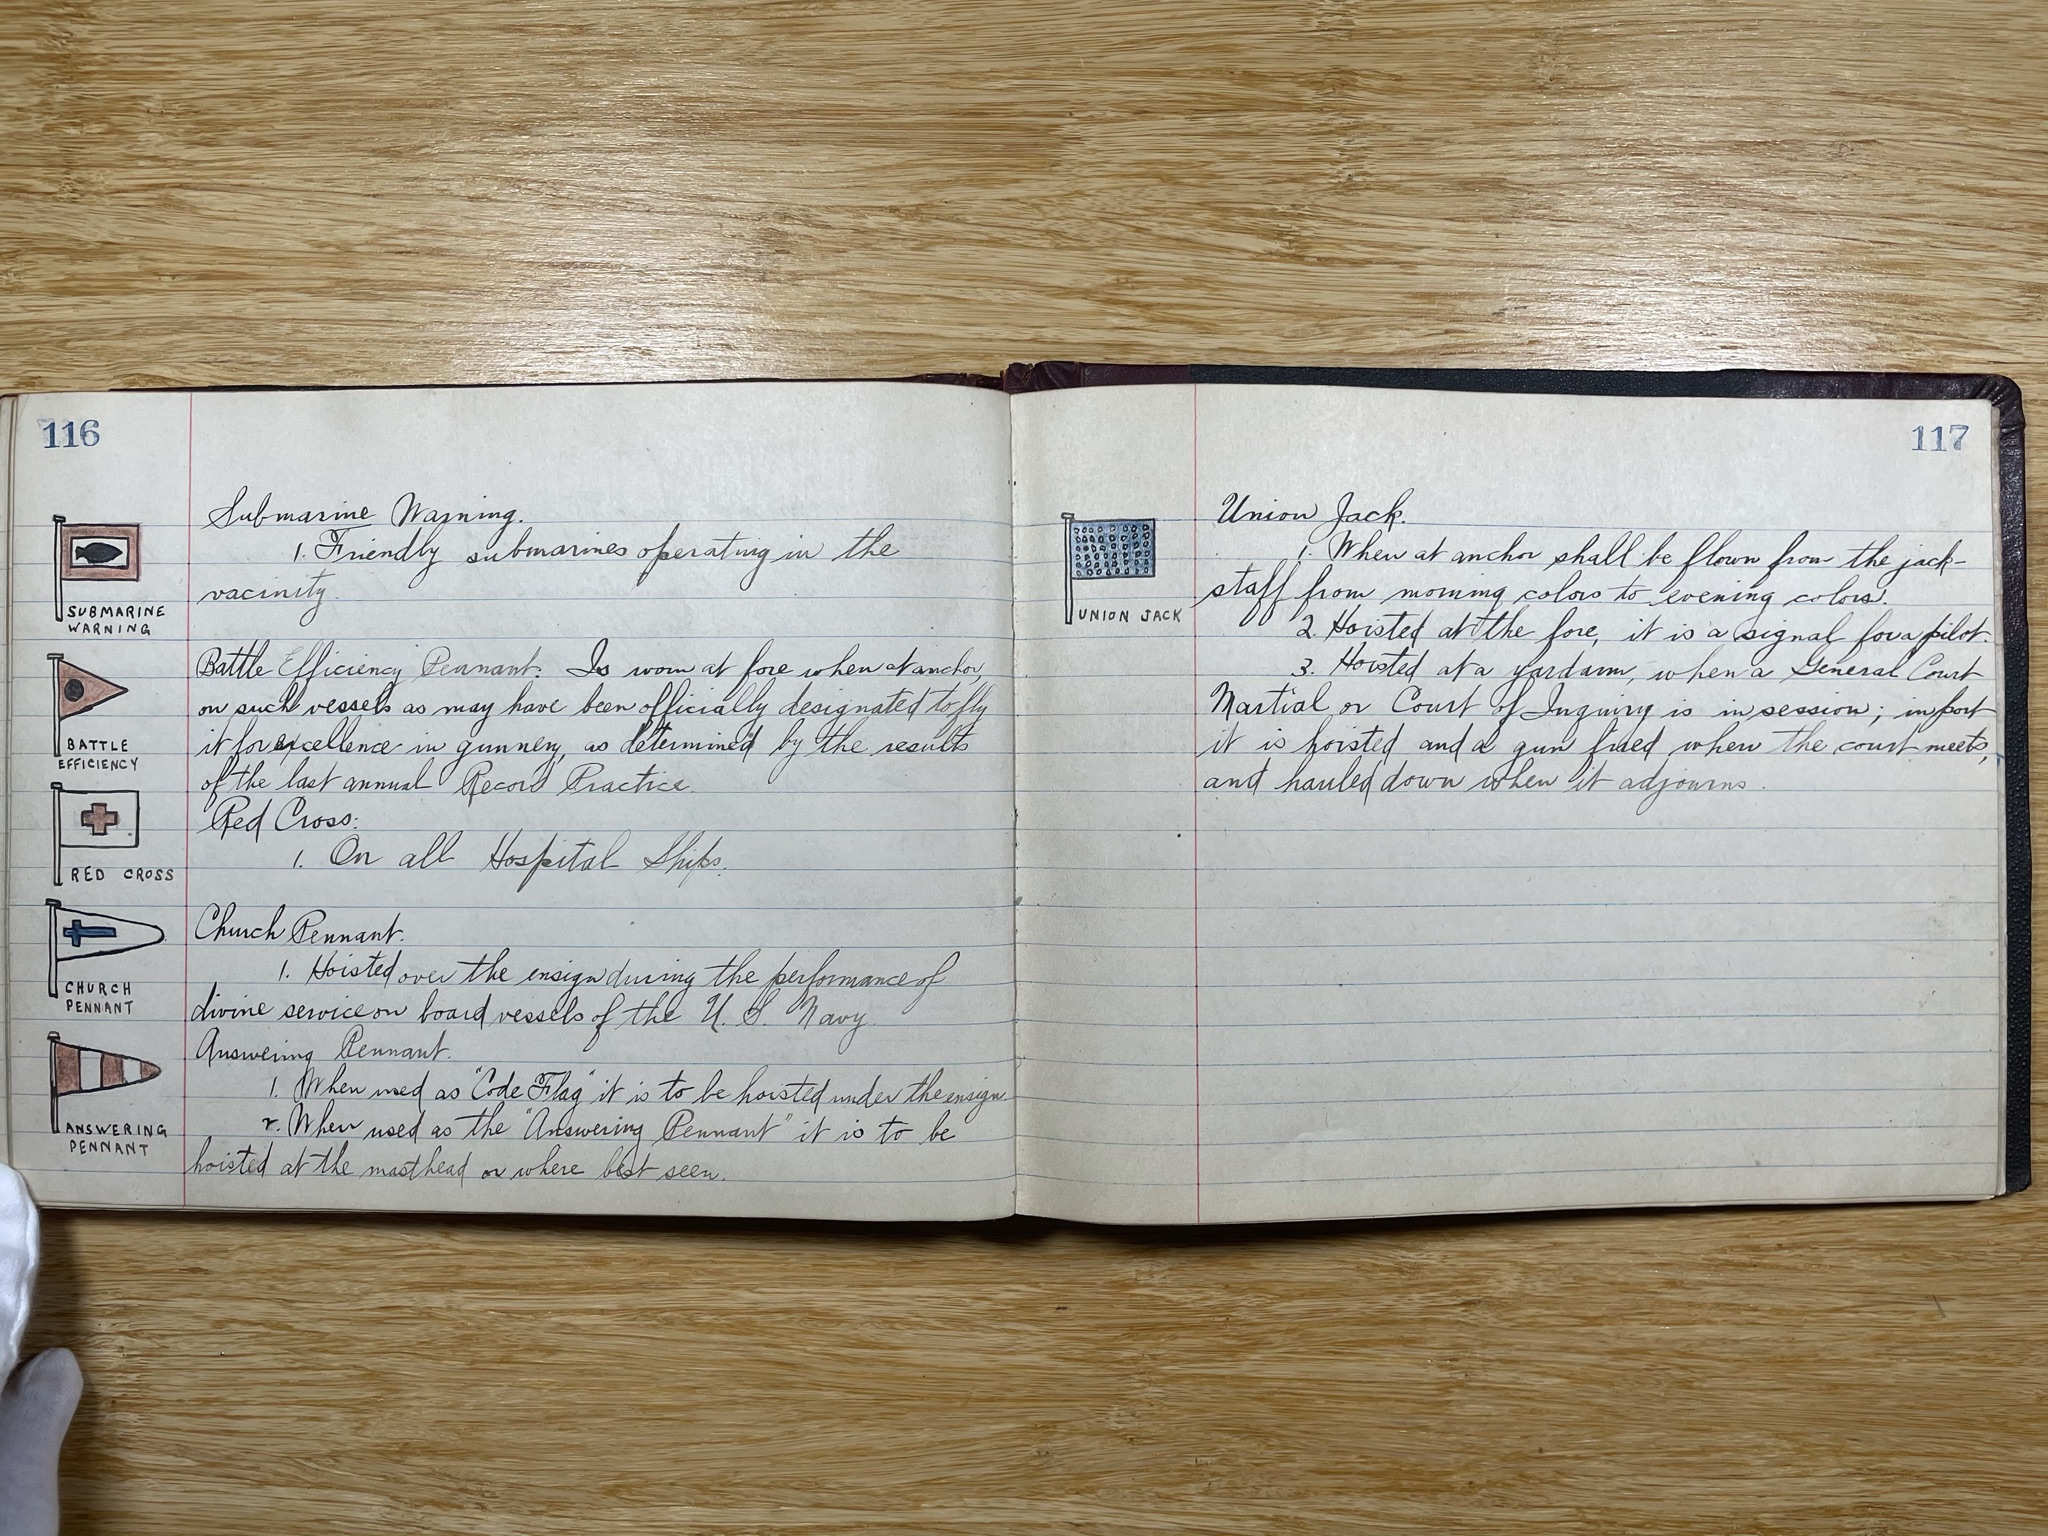 116
Submarine Warning.
1. Friendly submarines operating in the
vacinity.
SUBMARINE
WARNING
Battle Efficiency Pennant. Is worn at fore when at anchor,
on such vessels as may have been officially designated to fly
it for excellence in gunnery, as determined by the results
of the last annual Record Practice.
BATTLE
EFFICIENCY
Red Cross:
1. On all Hospital Ships.
RED CROSS
Church Pennant.
1. Hoisted over the ensign during the performance of
divine service on board vessels of the U. S. Navy.
CHURCH
PENNANT
Answering Pennant.
1. When used as "Code Flag" it is to be hoisted under the ensign
2. When used as the "Answering Pennant" it is to be
hoisted at the masthead or where best seen.
ANSWERING
PENNANT
117
Union Jack.
1. When at anchor shall be flown from the jack-
staff from morning colors to evening colors.
2. Hoisted at the fore, it is a signal for a pilot.
3. Hoisted at a yardarm, when a General Court
Martial or Court of Inquiry is in session; in port
it is hoisted and a gun fired when the court meets,
and hauled down when it adjourns.
UNION JACK